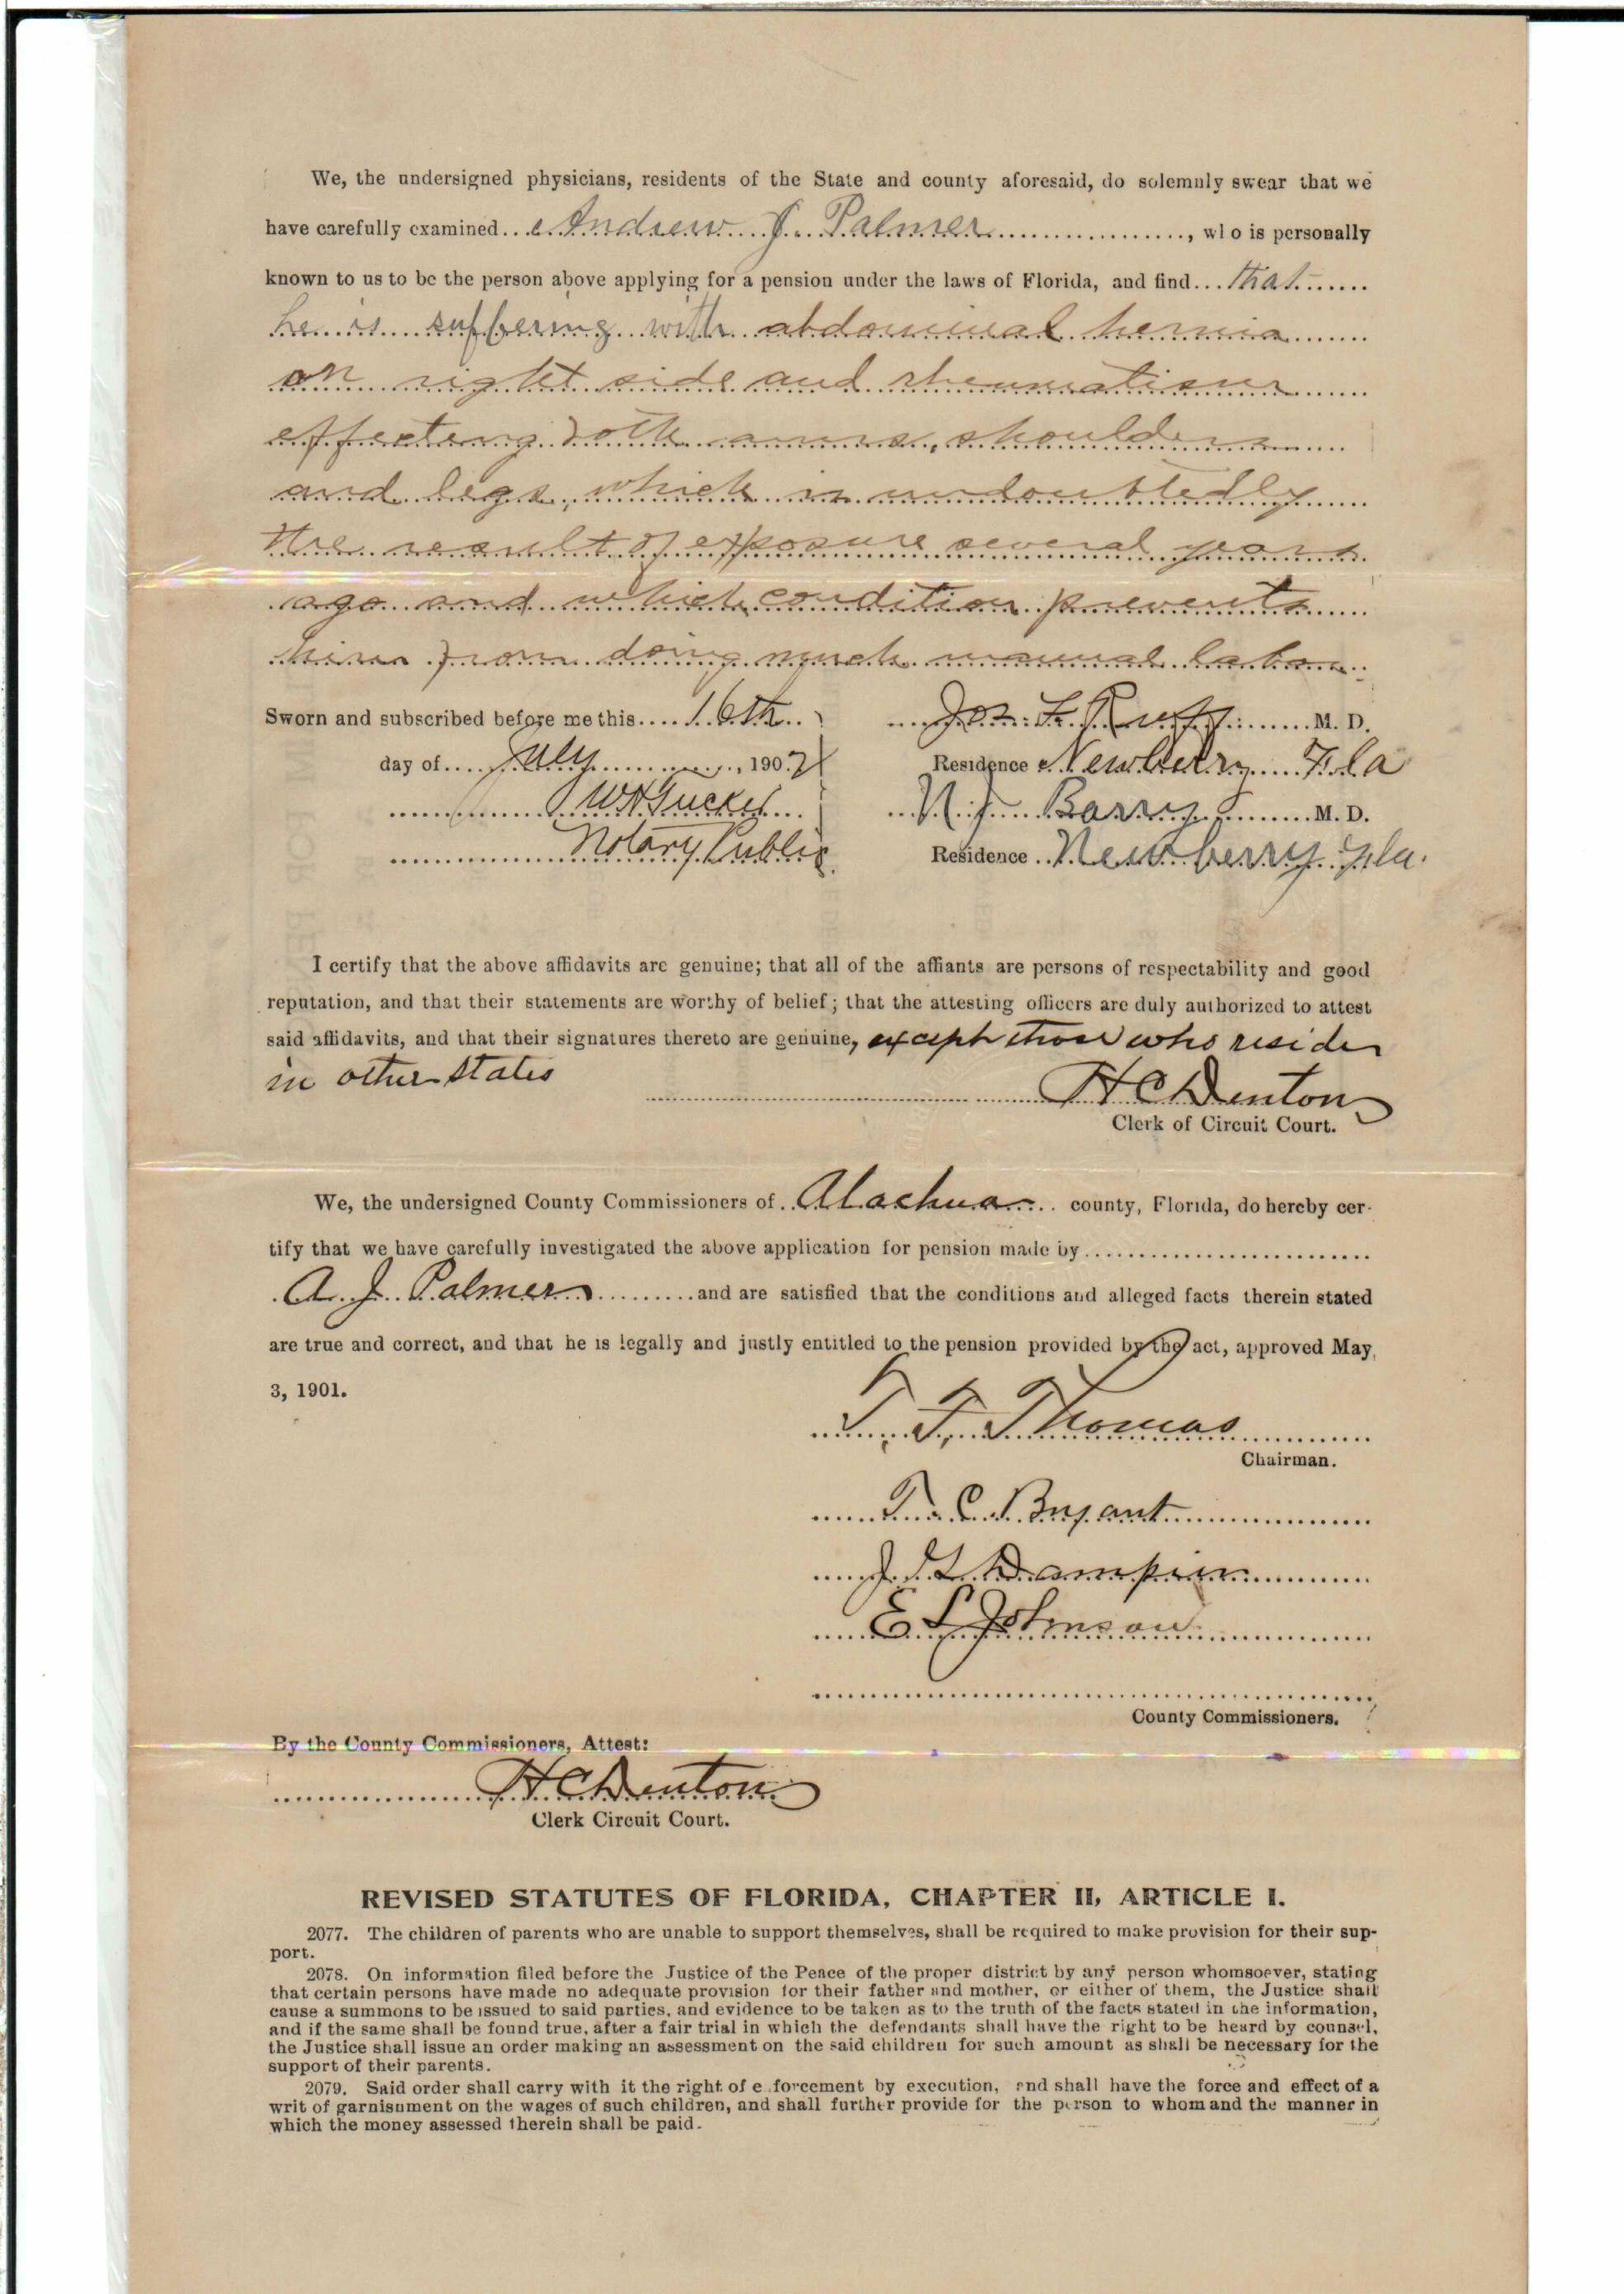 We, the undersigned physicians, residents of the State and county aforesaid, do solemnly swear that we
have carefully examined Andrew J. Palmer, who is personally
known to us to be the person above applying for a pension under the laws of Florida, and find that
he is suffering with abdominal hernia
on right side and rheumatism
effecting both arms, shoulders
and legs, which is undoubtedly
the result of exposure several years
ago and which condition prevents
him from doing much manual labor.
Sworn and subscribed before me this 16th
day of July, 190
W H Tucker
Notary Public
Jos. F. M. D.
Residence Newberry Fla
N. J. Barry M. D.
Residence Newberry Fla.
I certify that the above affidavits are genuine; that all of the affiants are persons of respectability and good
reputation, and that their statements are worthy of belief; that the attesting officers are duly authorized to attest
said affidavits, and that their signatures thereto are genuine, except those who reside
in other states
H C Denton
Clerk of Circuit Court.
We, the undersigned County Commissioners of Alachua county, Florida, do hereby cer-
tify that we have carefully investigated the above application for pension made by
A. J. Palmer and are satisfied that the conditions and alleged facts therein stated
are true and correct, and that he is legally and justly entitled to the pension provided by the act, approved May
3, 1901.
T. F. Thomas
Chairman.
T. C. Bryant
J. L. Dampier
E L Johnson
County Commissioners.
By the County Commissioners, Attest:
H C Denton
Clerk Circuit Court.
REVISED STATUTES OF FLORIDA, CHAPTER II, ARTICLE I.
2077. The children of parents who are unable to support themselves, shall be required to make provision for their sup-
port.
2078. On information filed before the Justice of the Peace of the proper district by any person whomsoever, stating
that certain persons have made no adequate provision for their father and mother, or either of them, the Justice shall
cause a summons to be issued to said parties, and evidence to be taken as to the truth of the facts stated in the information,
and if the same shall be found true, after a fair trial in which the defendants shall have the right to be heard by counsel,
the Justice shall issue an order making an assessment on the said children for such amount as shall be necessary for the
support of their parents.
2079. Said order shall carry with it the right of e forcement by execution, and shall have the force and effect of a
writ of garnishment on the wages of such children, and shall further provide for the person to whom and the manner in
which the money assessed therein shall be paid.